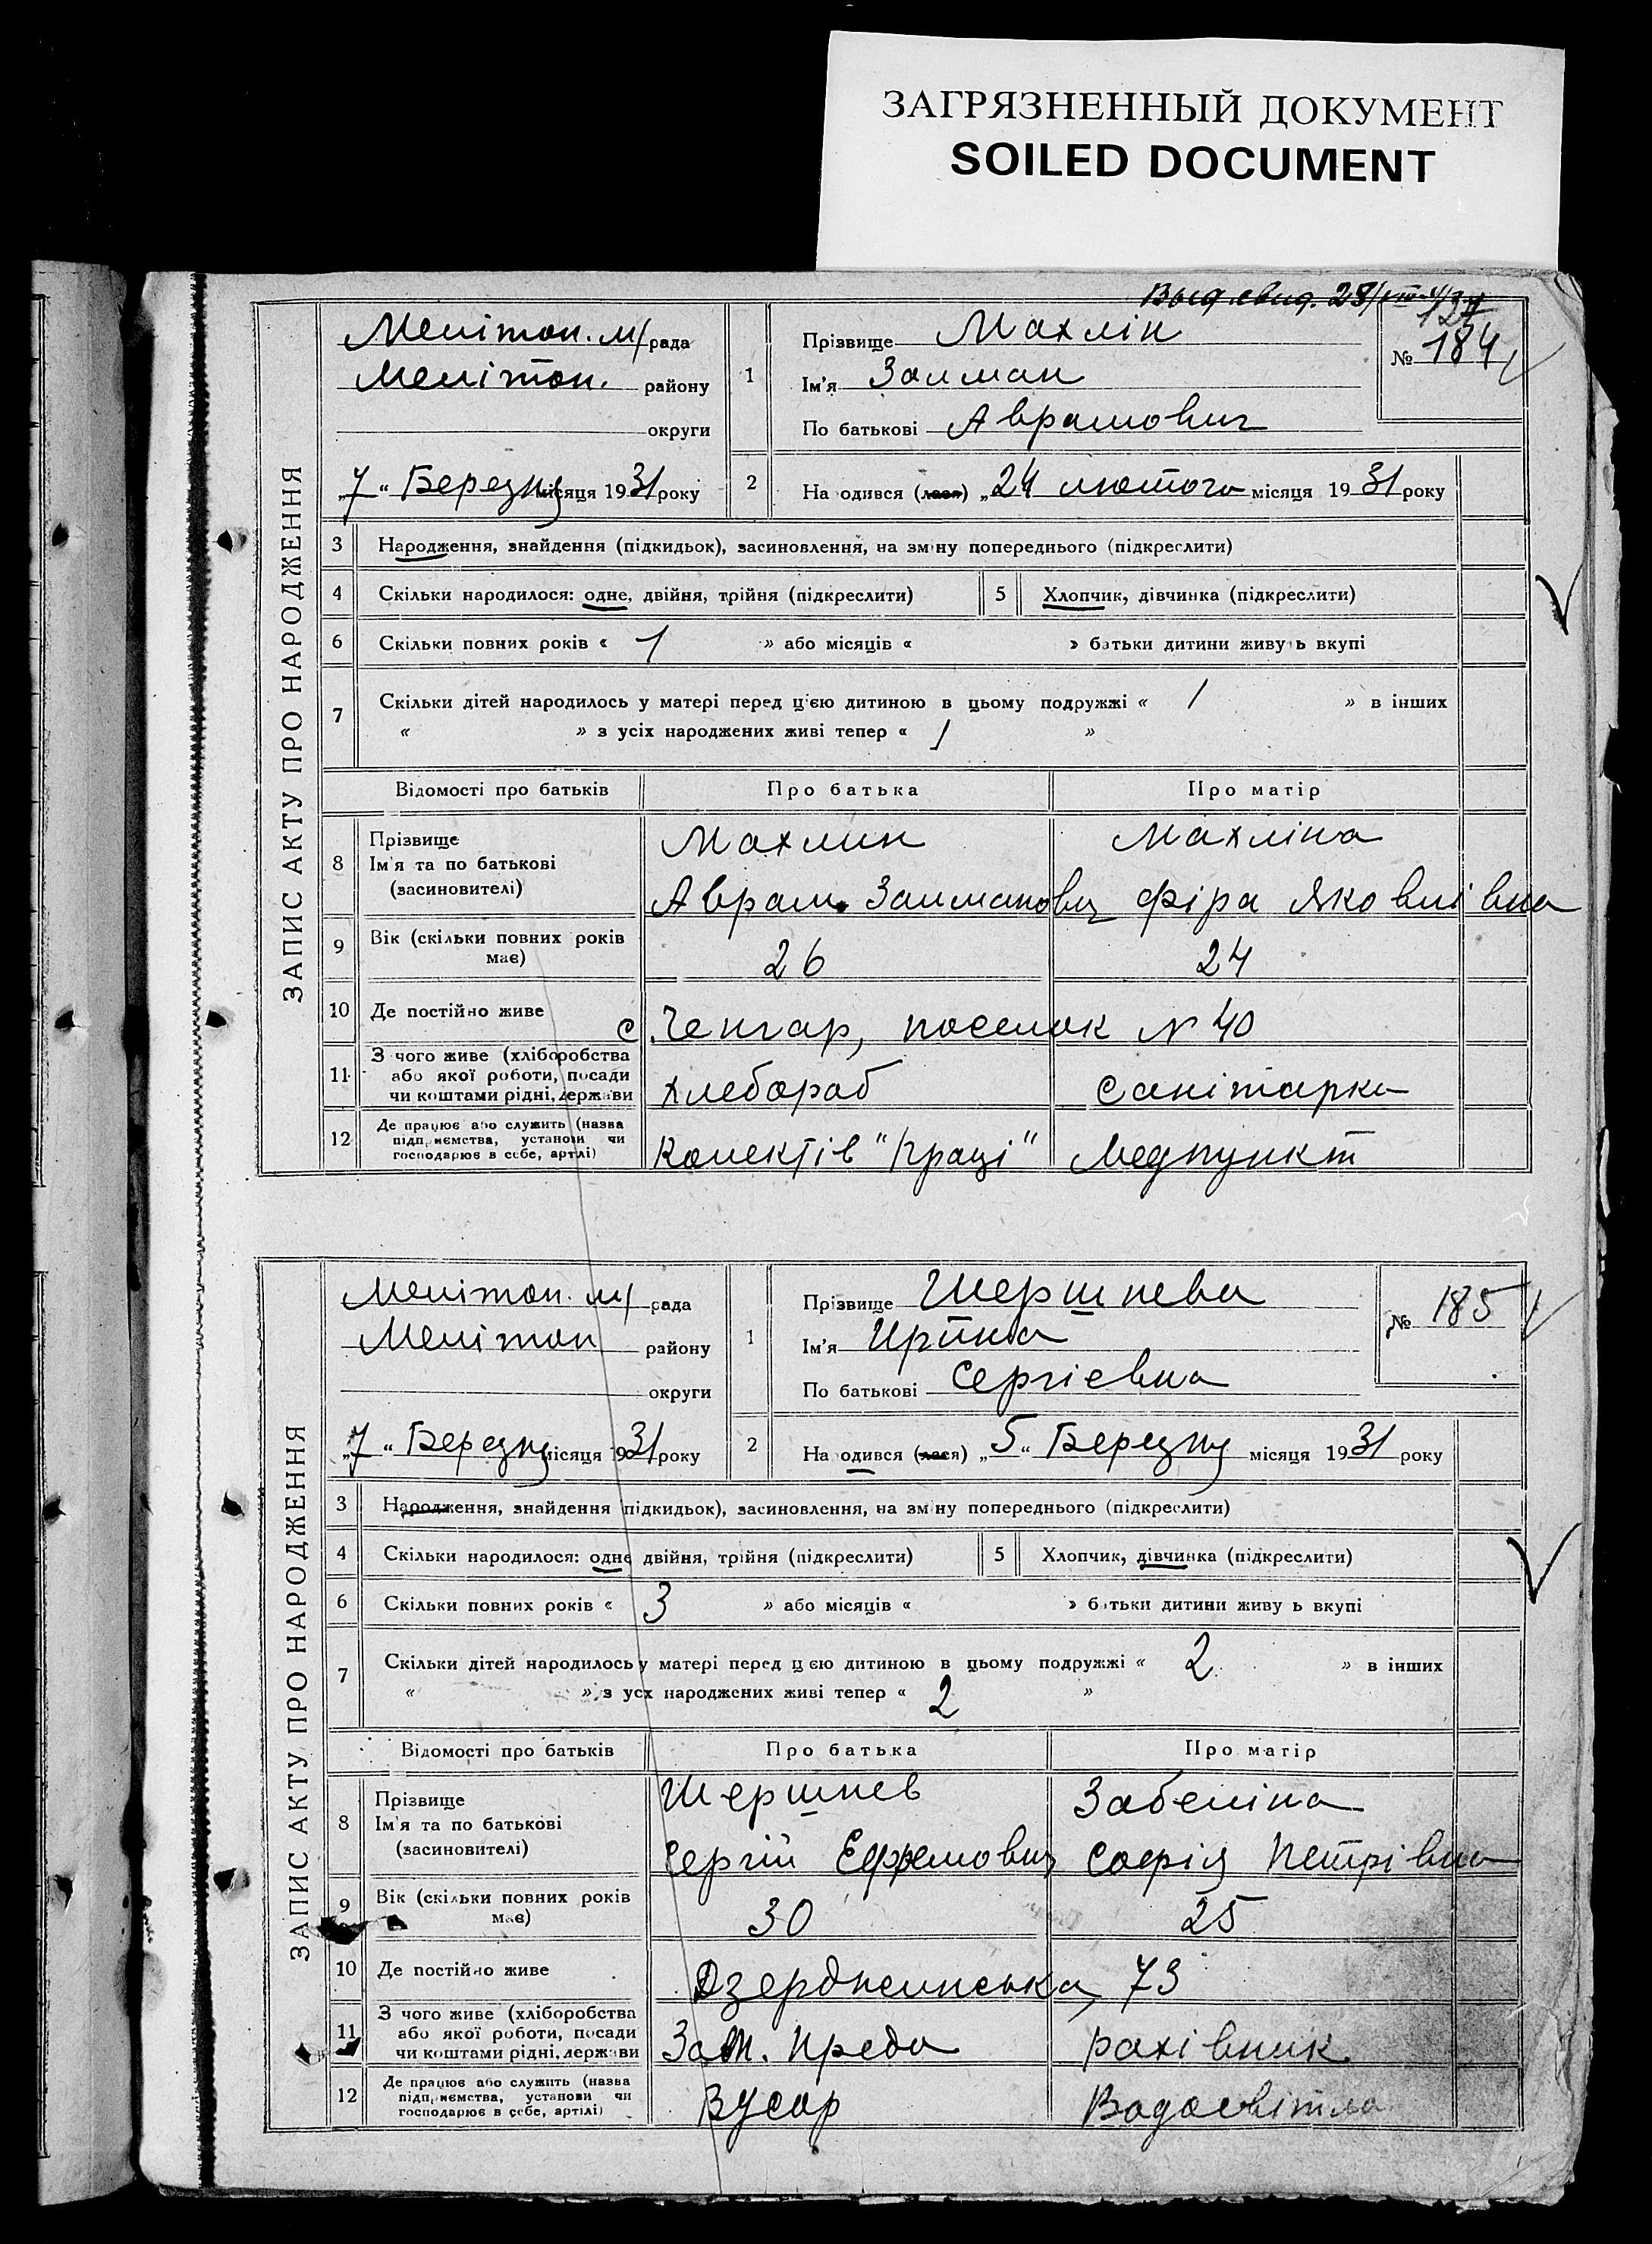 ЗАГРЯЗНЕННЫЙ ДОКУМЕНТ
SOILED DOCUMENT
Выд. свид.
ЗАПИС АКТУ ПРО НАРОДЖЕННЯ
Мелітоп. м/рада
Мелітоп. району
округи
„7“ Березня місяця 1931 року
1
Прізвище Махлін
Ім'я Залман
По батькові Аврамович
№ 184
2
На одився (лася) „24 лютого місяця 1931 року
3 Народження, знайдення (підкидьок), засиновлення, на зміну попереднього (підкреслити)
4 Скільки народилося: одне, двійня, трійня (підкреслити)
5 Хлопчик, дівчинка (підкреслити)
6 Скільки повних років « 1 » або місяців « » батьки дитини живуть вкупі
7 Скільки дітей народилось у матері перед ц'єю дитиною в цьому подружжі « 1 » в інших
« » з усіх народжених живі тепер « 1 »
Відомості про батьків Про батька Про матір
8 Прізвище
Ім'я та по батькові
(засновителі)
Махлин
Аврам Залманович
Махліна
Фіра Яковлівна
9 Вік (скільки повних років
має) 26 24
10 Де постійно живе с. Ченгар, поселок № 40
11 З чого живе (хліборобства
або якої роботи, посади
чи коштами рідні, держави
хлебораб санітарка
12 Де працює або служить (назва
підприємства, установи чи
господарює в себе, артілі)
Колектів "Праці" Медпункт
ЗАПИС АКТУ ПРО НАРОДЖЕННЯ
Мелітоп. м/ рада
Мелітоп району
округи
„7“ Березня місяця 1931 року
1
Прізвище Шершнева
Ім'я Ирина
По батькові Сергієвна
№ 185
2
На одився (лася) „5“ Березня місяця 1931 року
3 Народження, знайдення (підкидьок), засиновлення, на зміну попереднього (підкреслити)
4 Скільки народилося: одне двійня, трійня (підкреслити)
5 Хлопчик, дівчинка (підкреслити)
6 Скільки повних років « 3 » або місяців « » батьки дитини живу ь вкупі
7 Скільки дітей народилось у матері перед ц єю дитиною в цьому подружжі « 2 » в інших
« » з усх народжених живі тепер « 2 »
Відомості про батьків Про батька Про матір
8 Прізвище
Ім'я та по батькові
(засиновителі)
Шершнев
Сергій Ефремович
Забеліна
Софія Петрівна
9 Вік (скільки повних років
має) 30 25
10 Де постійно живе Дзердженська, 73
11 З чого живе (хліборобства
або якої роботи, посади
чи коштами рідні, держави
Зам. Преда рахівник
12 Де працює або служить (назва
підприємства, установи чи
господарює в себе, артілі)
Вусор Водосвітло